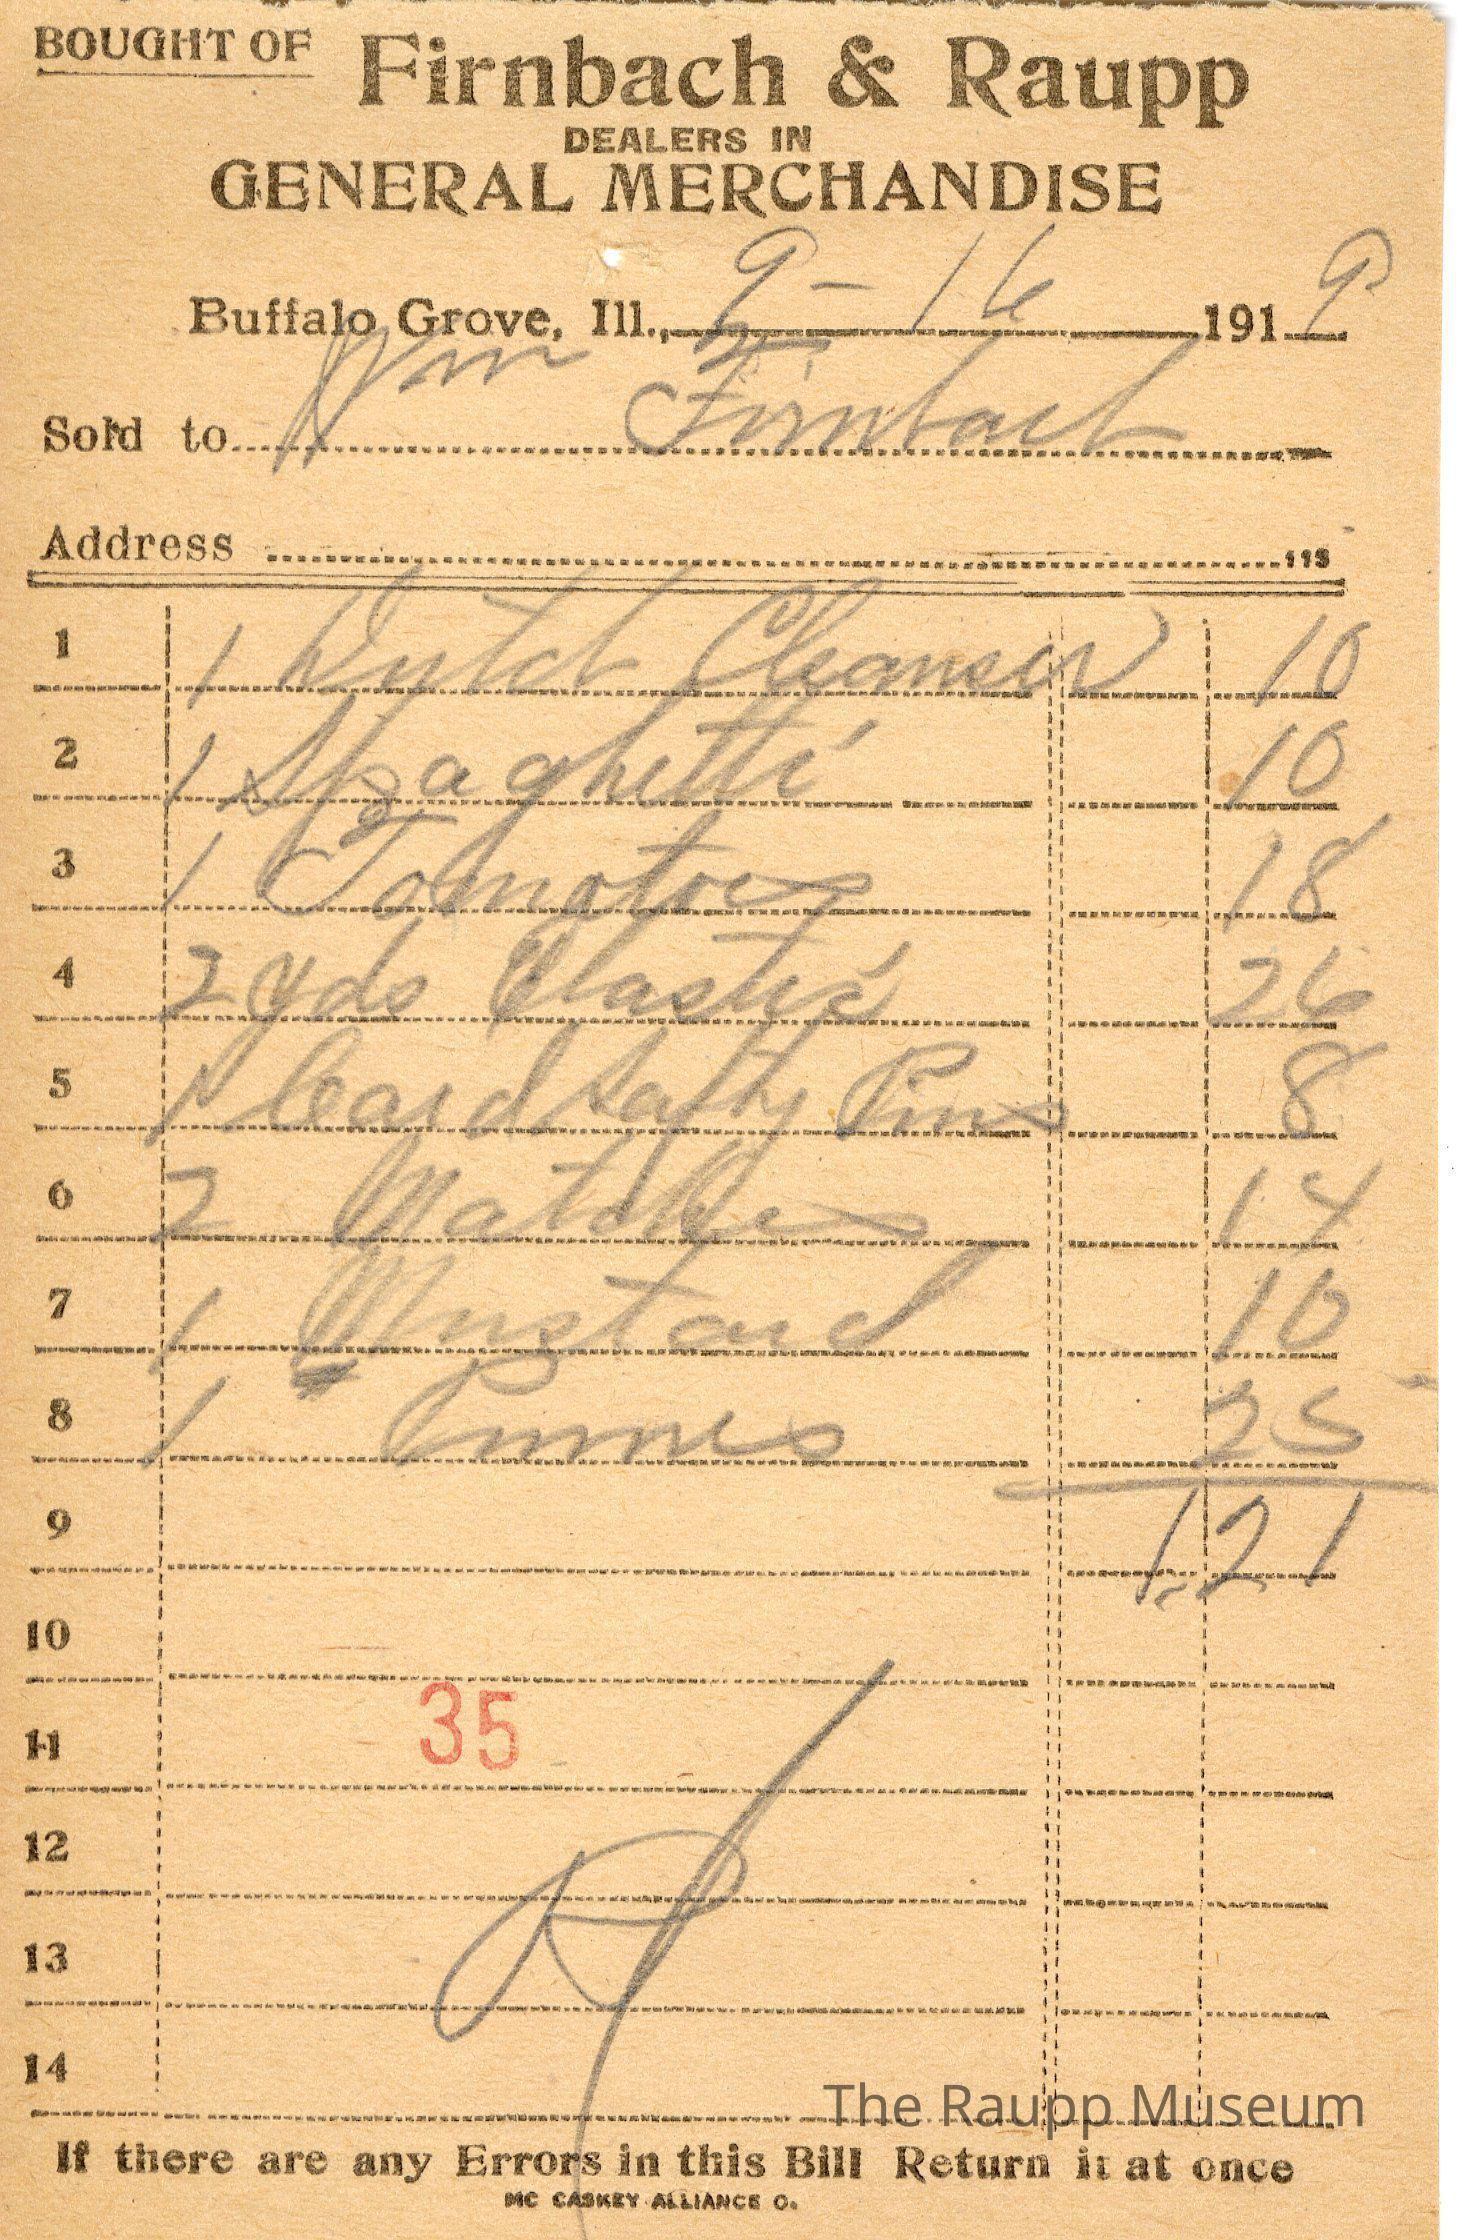 BOUGHT OF Firnbach & Raupp
DEALERS IN
GENERAL MERCHANDISE
Buffalo Grove, Ill., 9-16 1919
Sold to Wm Firnbach
Address 113
1 1 Dutch Cleanser 10
2 1 Spaghetti 10
3 1 Tomatoes 18
4 2 yds Elastic 26
5 1 Card Safty Pins 8
6 2 Matches 14
7 1 Mustard 10
8 1 Prunes 25
9 1.21
10
35
11
12
13
14
The Raupp Museum
If there are any Errors in this Bill Return it at once
MC CASKEY ALLIANCE O.